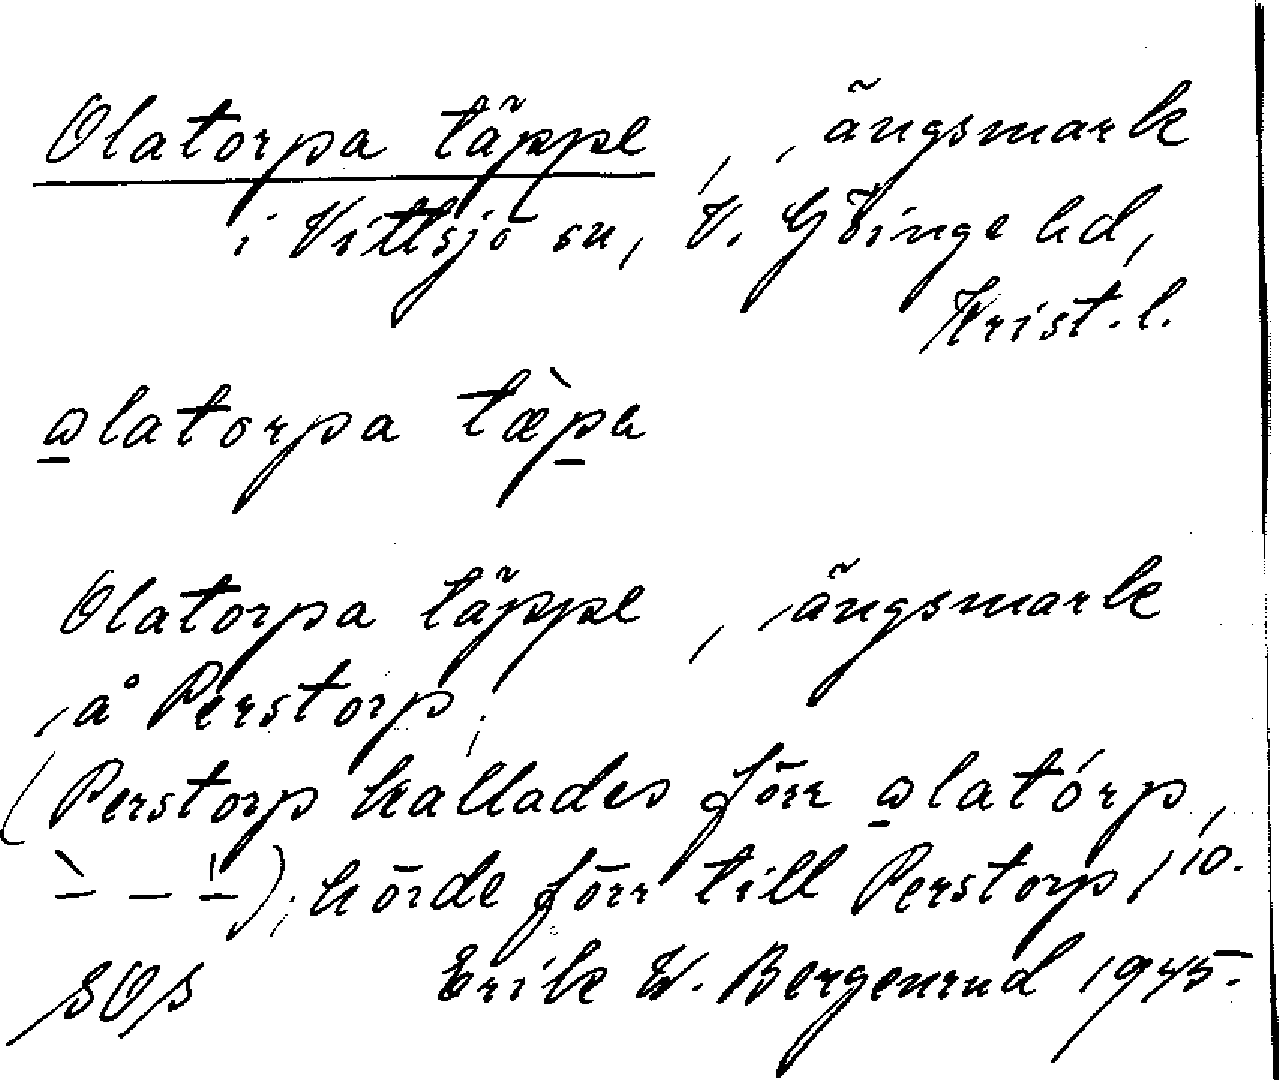 Olatorpa täppe, ängsmark
i Vittsjö sn, V. Göinge hd,
Krist. l.
olatorpa tæ̀pa
Olatorpa täppe, ängsmark
å Perstorp;
(Perstorp kallades förr olatórp,
); hörde förr till Perstorp 1/10.
SOS Erik W. Bergenrud 1945.